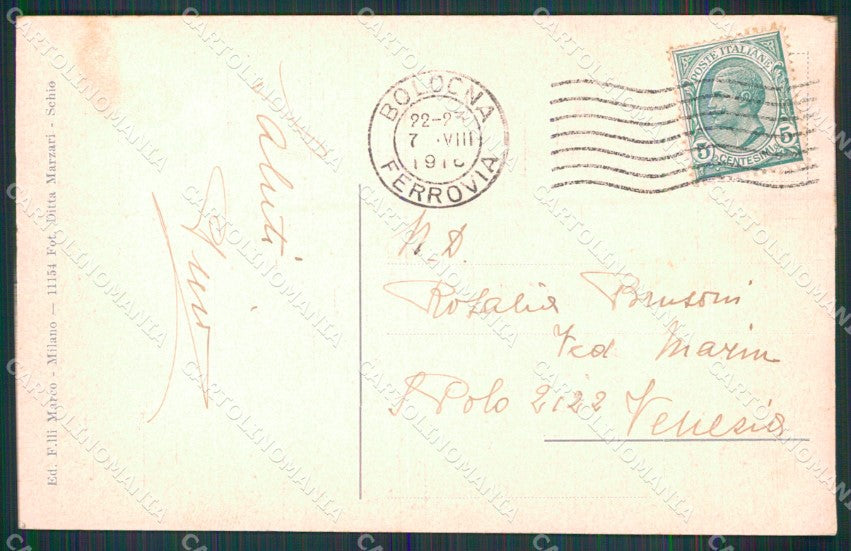 Ed. F.lli Marco - Milano — 11154 Fot. Ditta Marzari - Schio
Saluti
BOLOGNA
22-2
7 VIII
191
FERROVIA
POSTE ITALIANE
5 CENTESIMI 5
N.D.
Rosalia Brusoni
Ved. Marin
S Polo 2122 Venezia
CARTOLINOMANIA